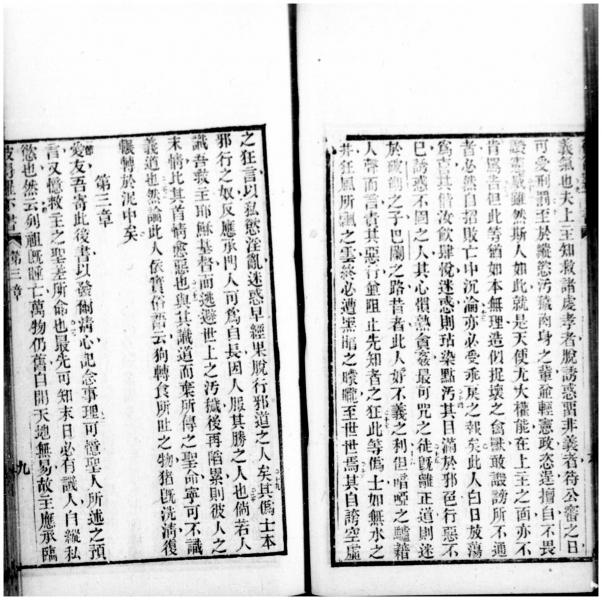 義氣也夫上主知救諸虔孝者脫誘惑畱非義者待公審之日
可受刑罰至於縱慾汚穢肉身之輩藐輕憲政恣逞擅自不畏
謗憲威雖然斯人如此就是天使尤大權能在上主之面亦不
肯罵詈但此等猶如本無理造似捉壞之禽獸敢譏謗所不通
者必然自招敗亡中沉淪亦必受乖戾之報矣此人白日放蕩
爲喜其偕汝飲肆悅迷惑則玷染點汚其目滿於邪色行惡不
已誘惑不固之人其心慣熟貪婪最可咒之徒旣離正道則迷
於破衲之子巴蘭之路昔者此人好不義之利但啞啞之驢藉
人聲而言責其惡行並阻止先知者之狂此等僞士如無水之
井狂風所颿之雲終必遭墨暗之曚曨至世世焉其自誇空虛
之狂言以私慾淫亂迷惑早經果脫行邪道之人矣其僞士本
邪行之奴反應承門人可爲自長因人服其勝之人也倘若人
識吾救主耶穌基督而逃避世上之汚穢後再陷累則彼人之
末情比其首情愈惡也與其識道而棄所傳之聖命寧可不識
義道也然論此人依實俗語云狗轉食所吐之物猪旣洗淸復
輾轉於泥中矣
第三章
愛友吾寄此後書以發爾淸心記念事理可憶聖人所述之預
言又憶救主之聖差所命也最先可知末日必有譏人自縱私
慾也然云列祖旣睡亡萬物仍舊自開天地無易故主應承臨
第三章
九